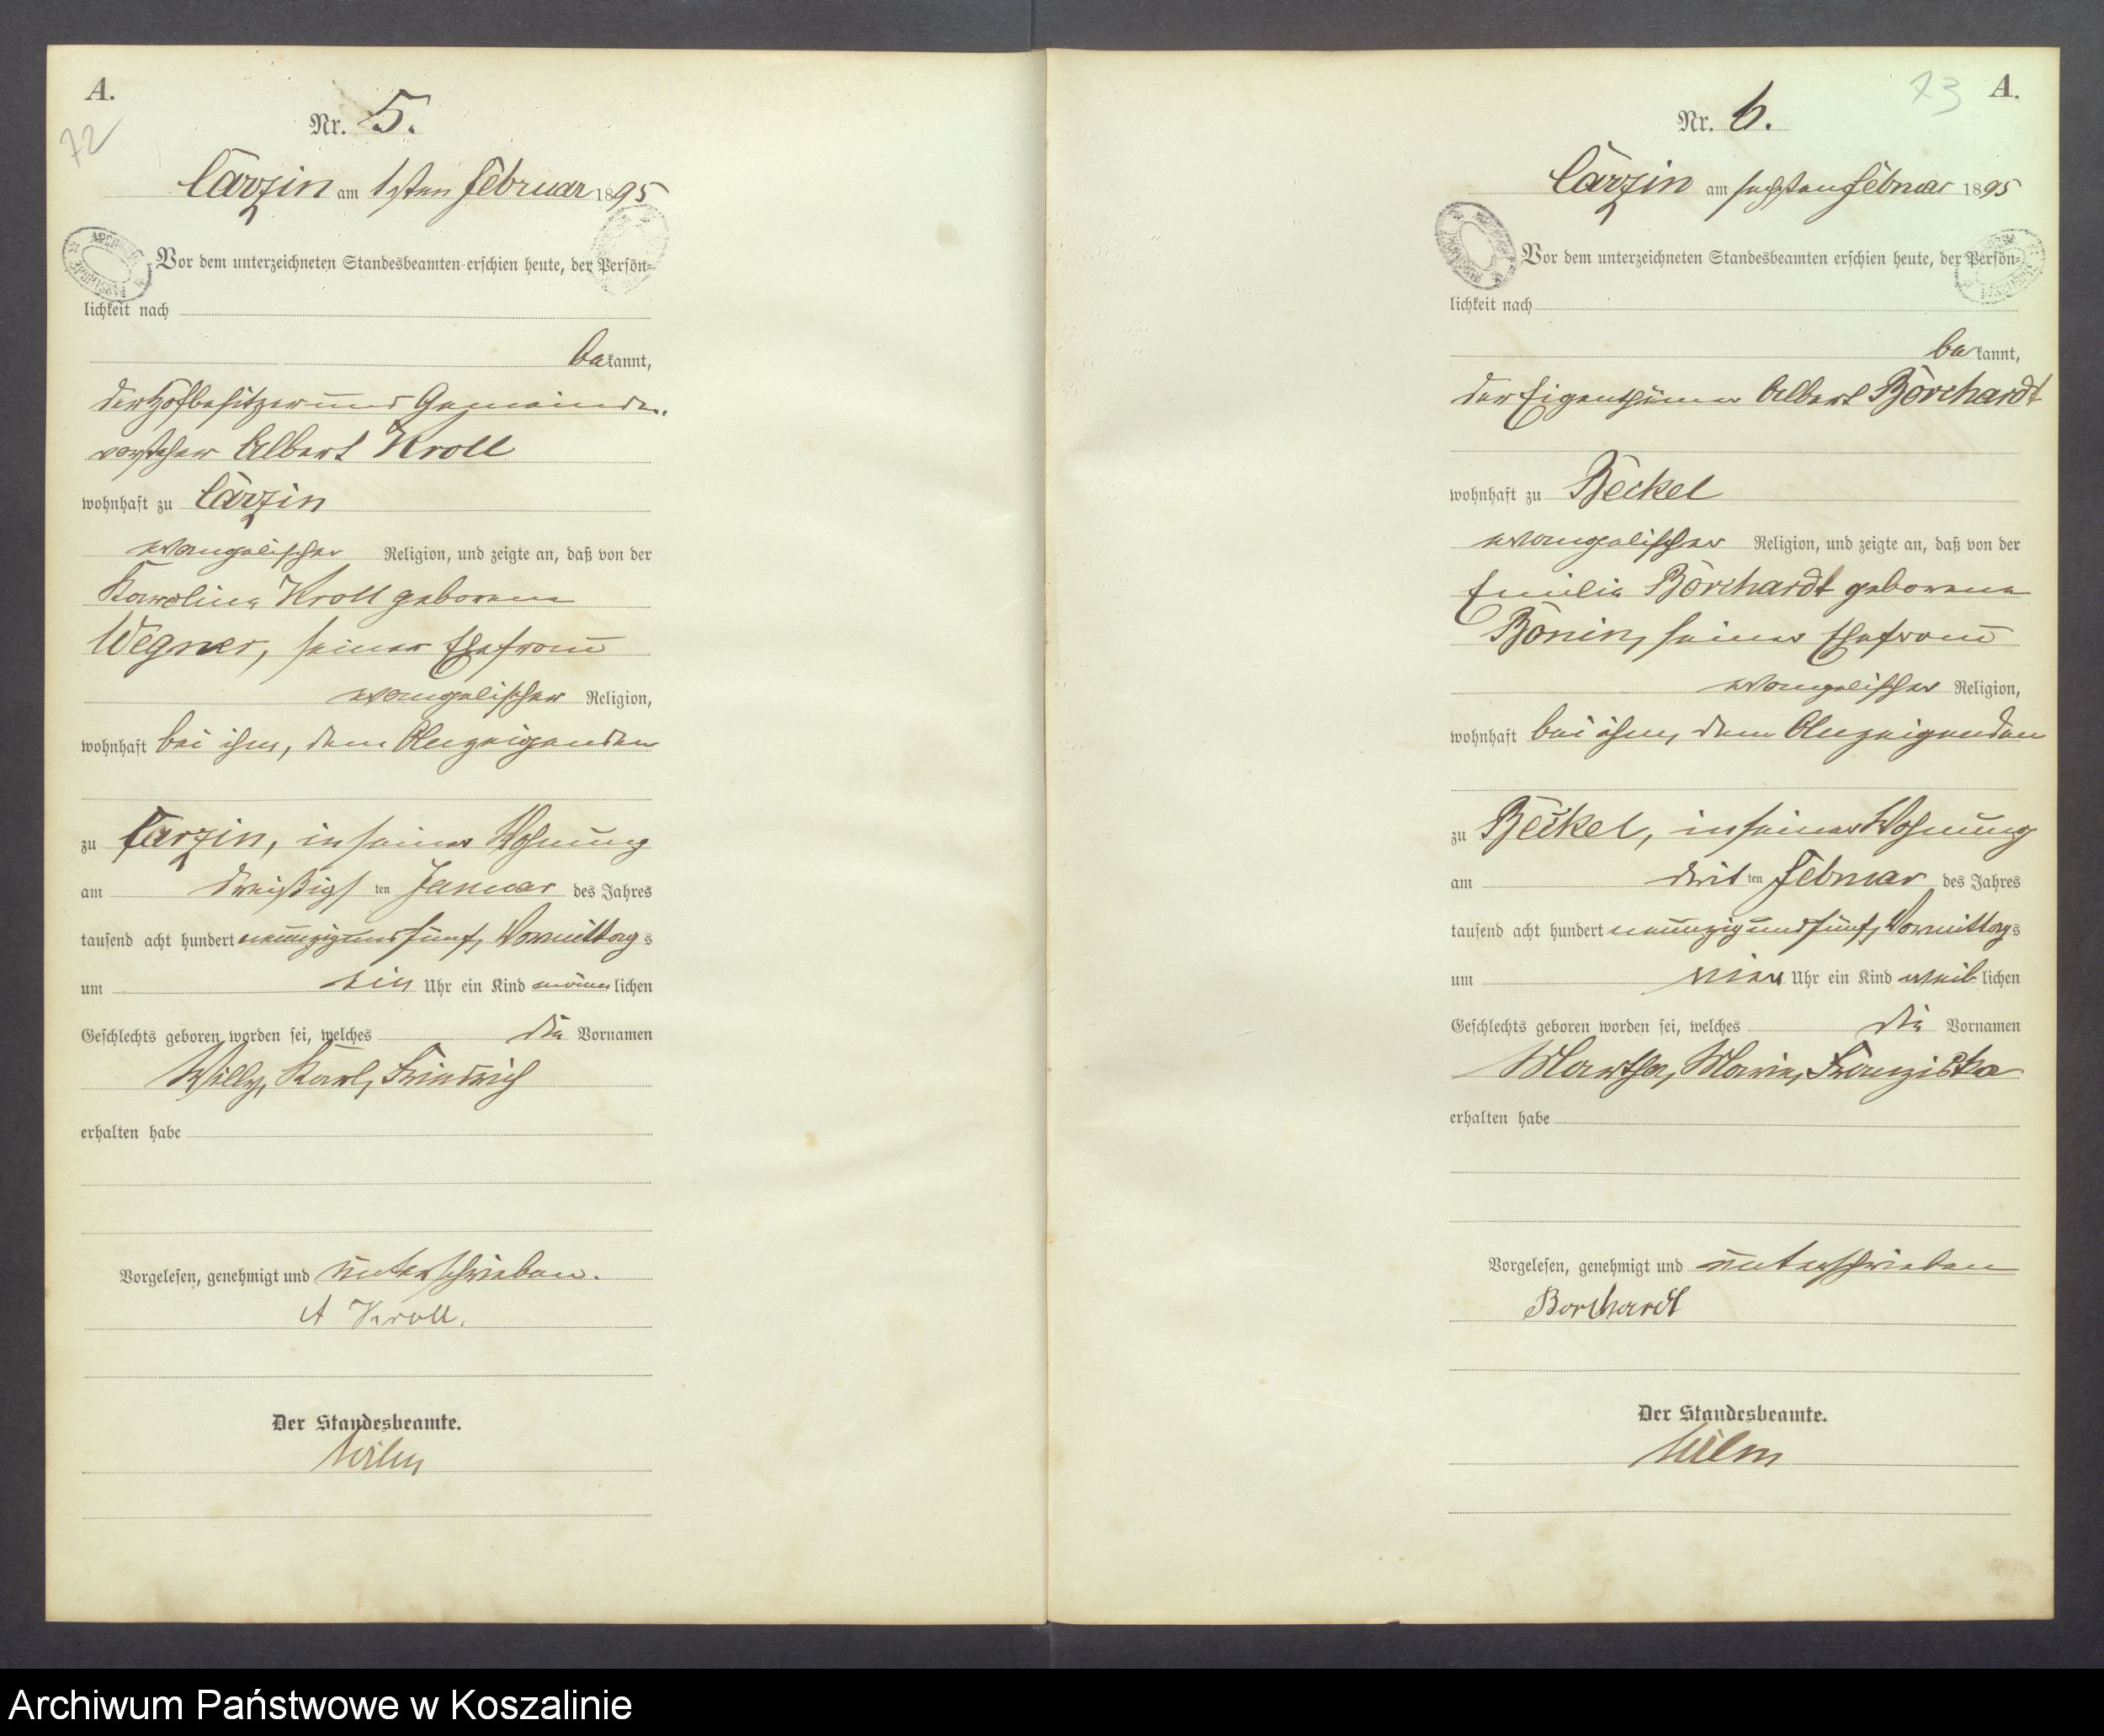 A.
72
Nr. 5.
Carzin am 1sten Februar 1895
Vor dem unterzeichneten Standesbeamten erschien heute, der Persön=
lichkeit nach
bekannt,
der Hofbesitzer und Gemeinde-
vorsteher Albert Kroll
wohnhaft zu Carzin
evangelischer Religion, und zeigte an, daß von der
Karoline Kroll geborene
Wegner, seiner Ehefrau
evangelischer Religion,
wohnhaft bei ihm, dem Anzeigenden
zu Carzin, in seiner Wohnung
am dreißigsten Januar des Jahres
tausend acht hundert neunzig und fünf, Vormittags
um ein Uhr ein Kind männlichen
Geschlechts geboren worden sei, welches die Vornamen
Willy, Karl, Friedrich
erhalten habe
Vorgelesen, genehmigt und unterschrieben.
A Kroll.
Der Standesbeamte.
Wilm
73
A.
Nr. 6.
Carzin am sechsten Februar 1895
Vor dem unterzeichneten Standesbeamten erschien heute, der Persön=
lichkeit nach
bekannt,
der Eigenthümer Albert Borchardt
wohnhaft zu Beckel
evangelischer Religion, und zeigte an, daß von der
Emilie Borchardt geborene
Bonin, seiner Ehefrau
evangelischer Religion,
wohnhaft bei ihm, dem Anzeigenden
zu Beckel, in seiner Wohnung
am dritten Februar des Jahres
tausend acht hundert neunzig und fünf, Vormittags
um vier Uhr ein Kind weiblichen
Geschlechts geboren worden sei, welches die Vornamen
Martha, Marie, Franziska
erhalten habe
Vorgelesen, genehmigt und unterschrieben
Borchardt
Der Standesbeamte.
Wilm
Archiwum Państwowe w Koszalinie